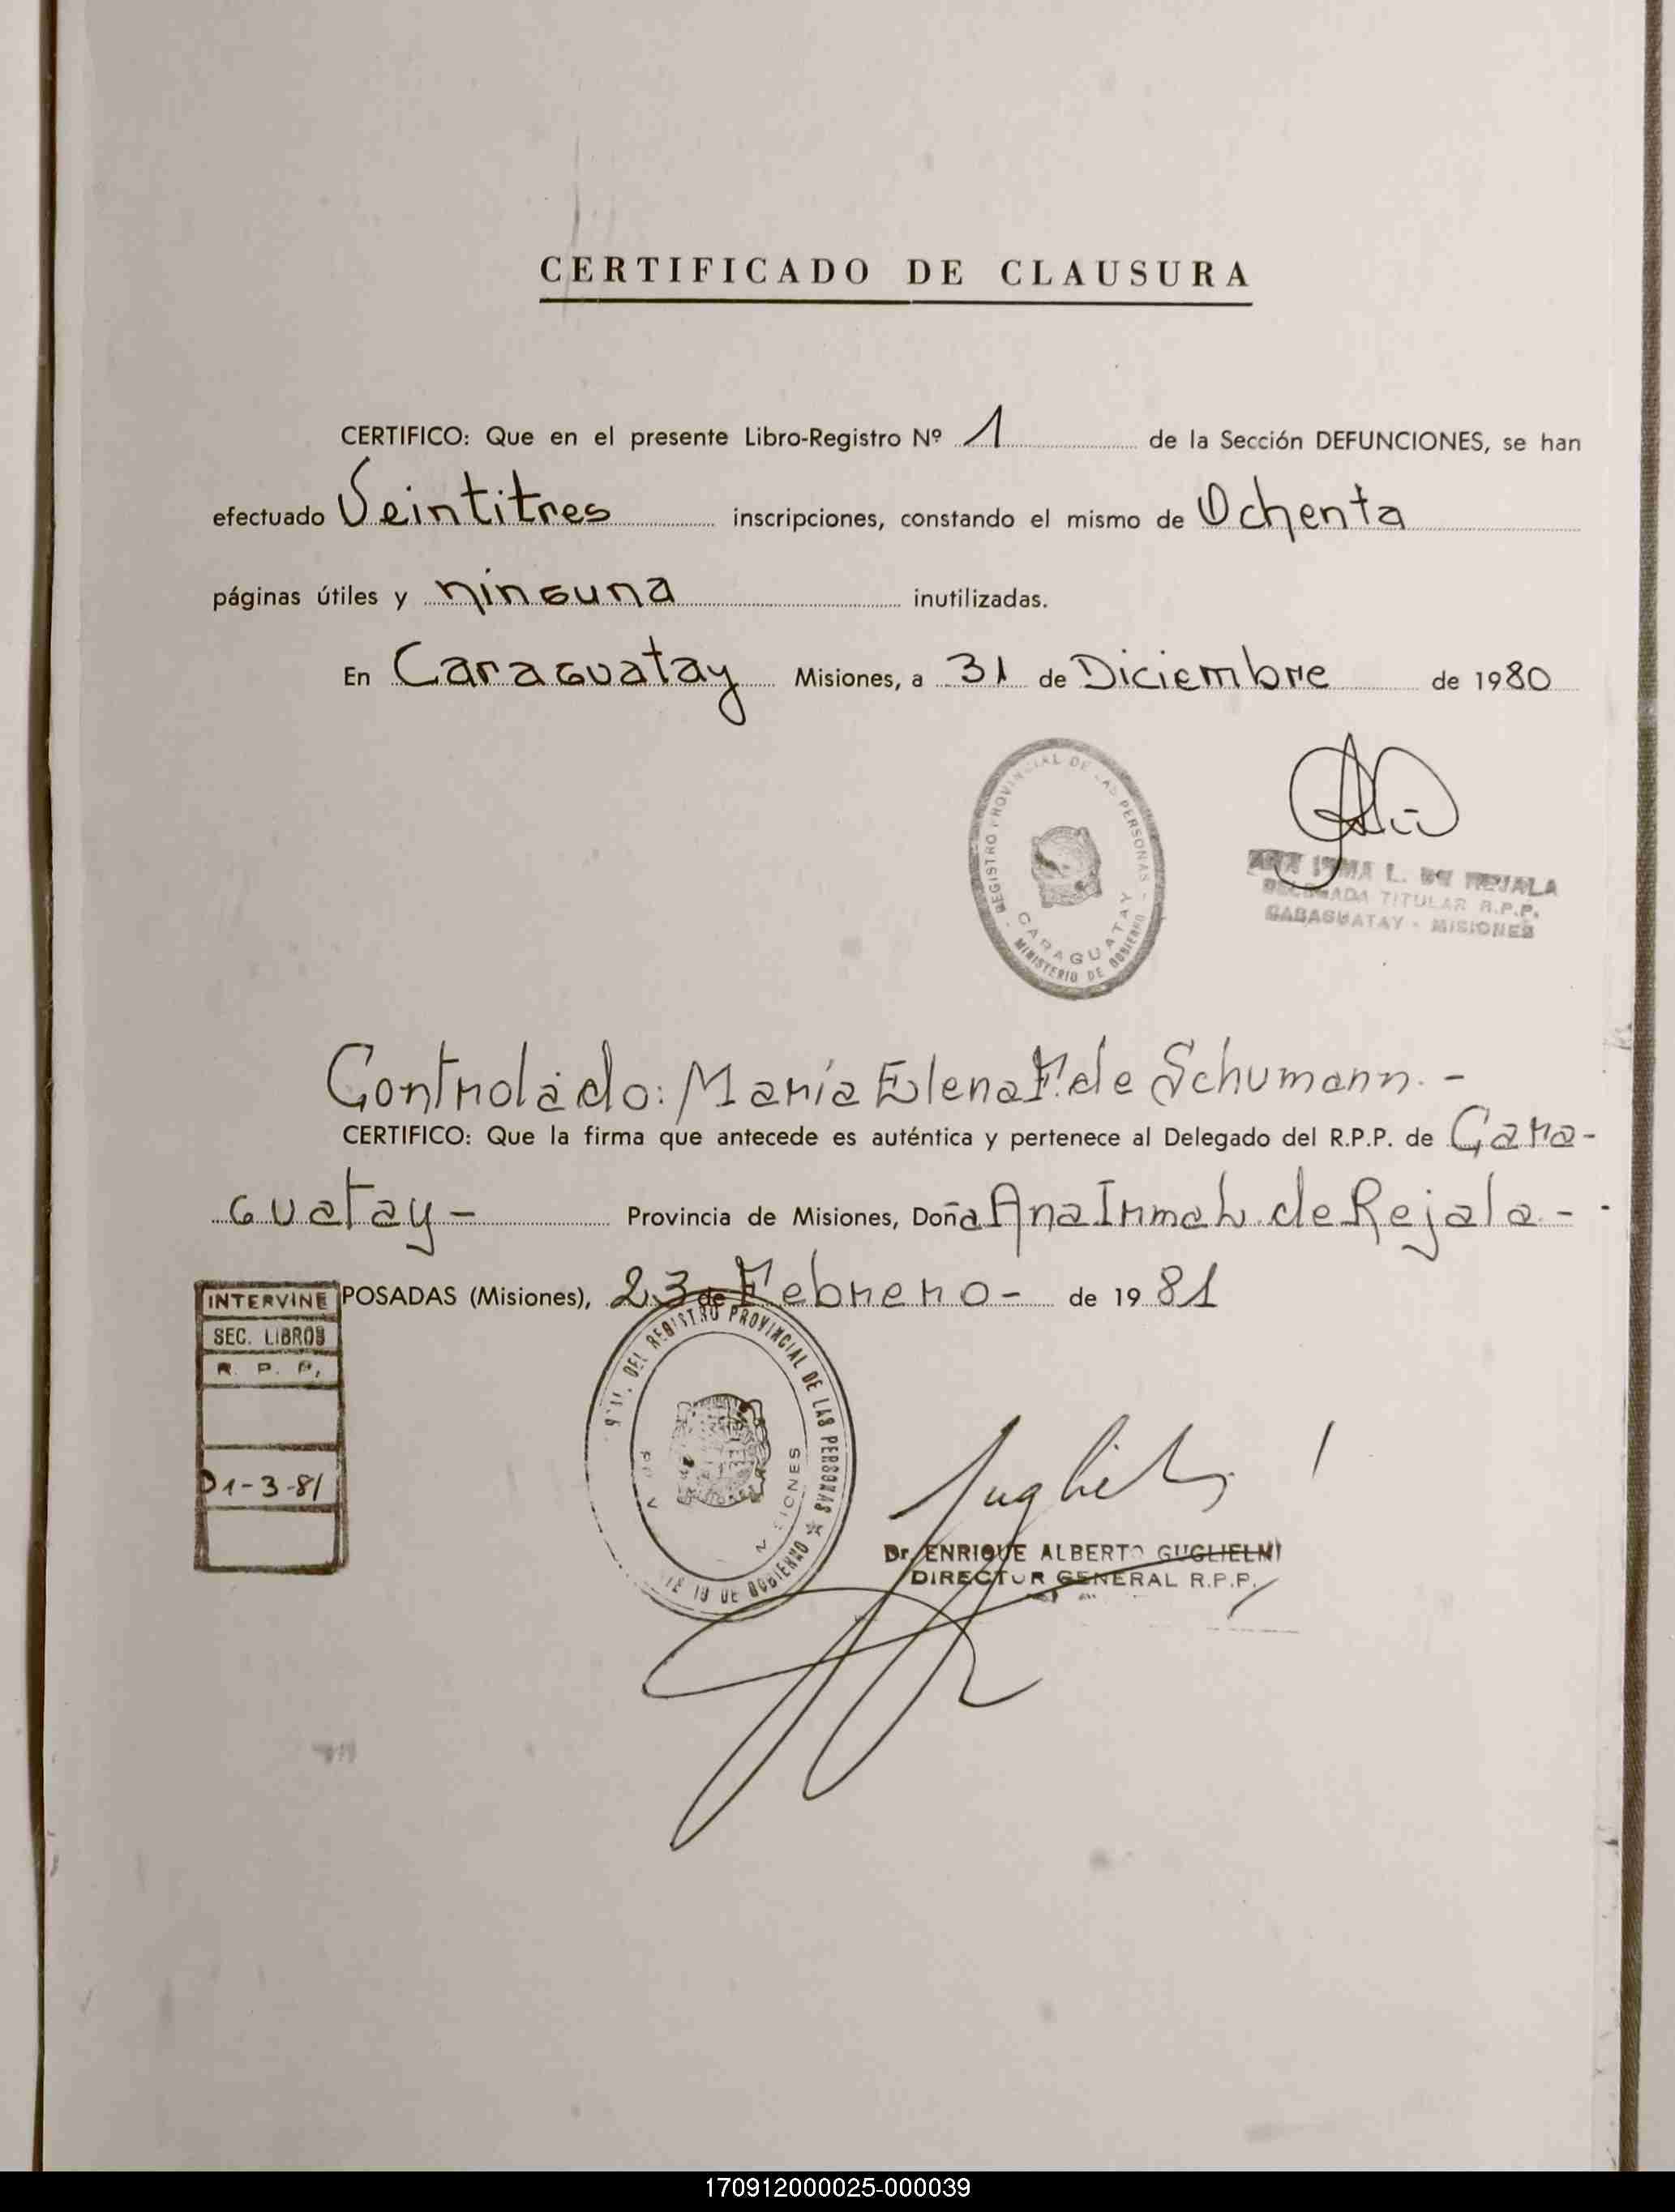 CERTIFICADO DE CLAUSURA
CERTIFICO: Que en el presente Libro-Registro Nº 1 de la Sección DEFUNCIONES, se han
efectuado Veintitres inscripciones, constando el mismo de Ochenta
páginas útiles y ninguna inutilizadas.
En Caraguatay Misiones, a 31 de Diciembre de 1980
REGISTRO PROVINCIAL DE LAS PERSONAS - MINISTERIO DE GOBIERNO -
CARAGUATAY
ANA IRMA L. DE REJALA
DELEGADA TITULAR R.P.P.
CARAGUATAY - MISIONES
Controlado: María Elena F. de Schumann. -
CERTIFICO: Que la firma que antecede es auténtica y pertenece al Delegado del R.P.P. de Cara-
guatay - Provincia de Misiones, Doña Ana Irma L. de Rejala - -
POSADAS (Misiones), 23 de Febrero - de 1981
INTERVINE
SEC. LIBROS
R. P. P.
1-3-81
DEL REGISTRO PROVINCIAL DE LAS PERSONAS
DE GOBIERNO
Dr. ENRIQUE ALBERTO GUGLIELMI
DIRECTOR GENERAL R.P.P.
170912000025-000039